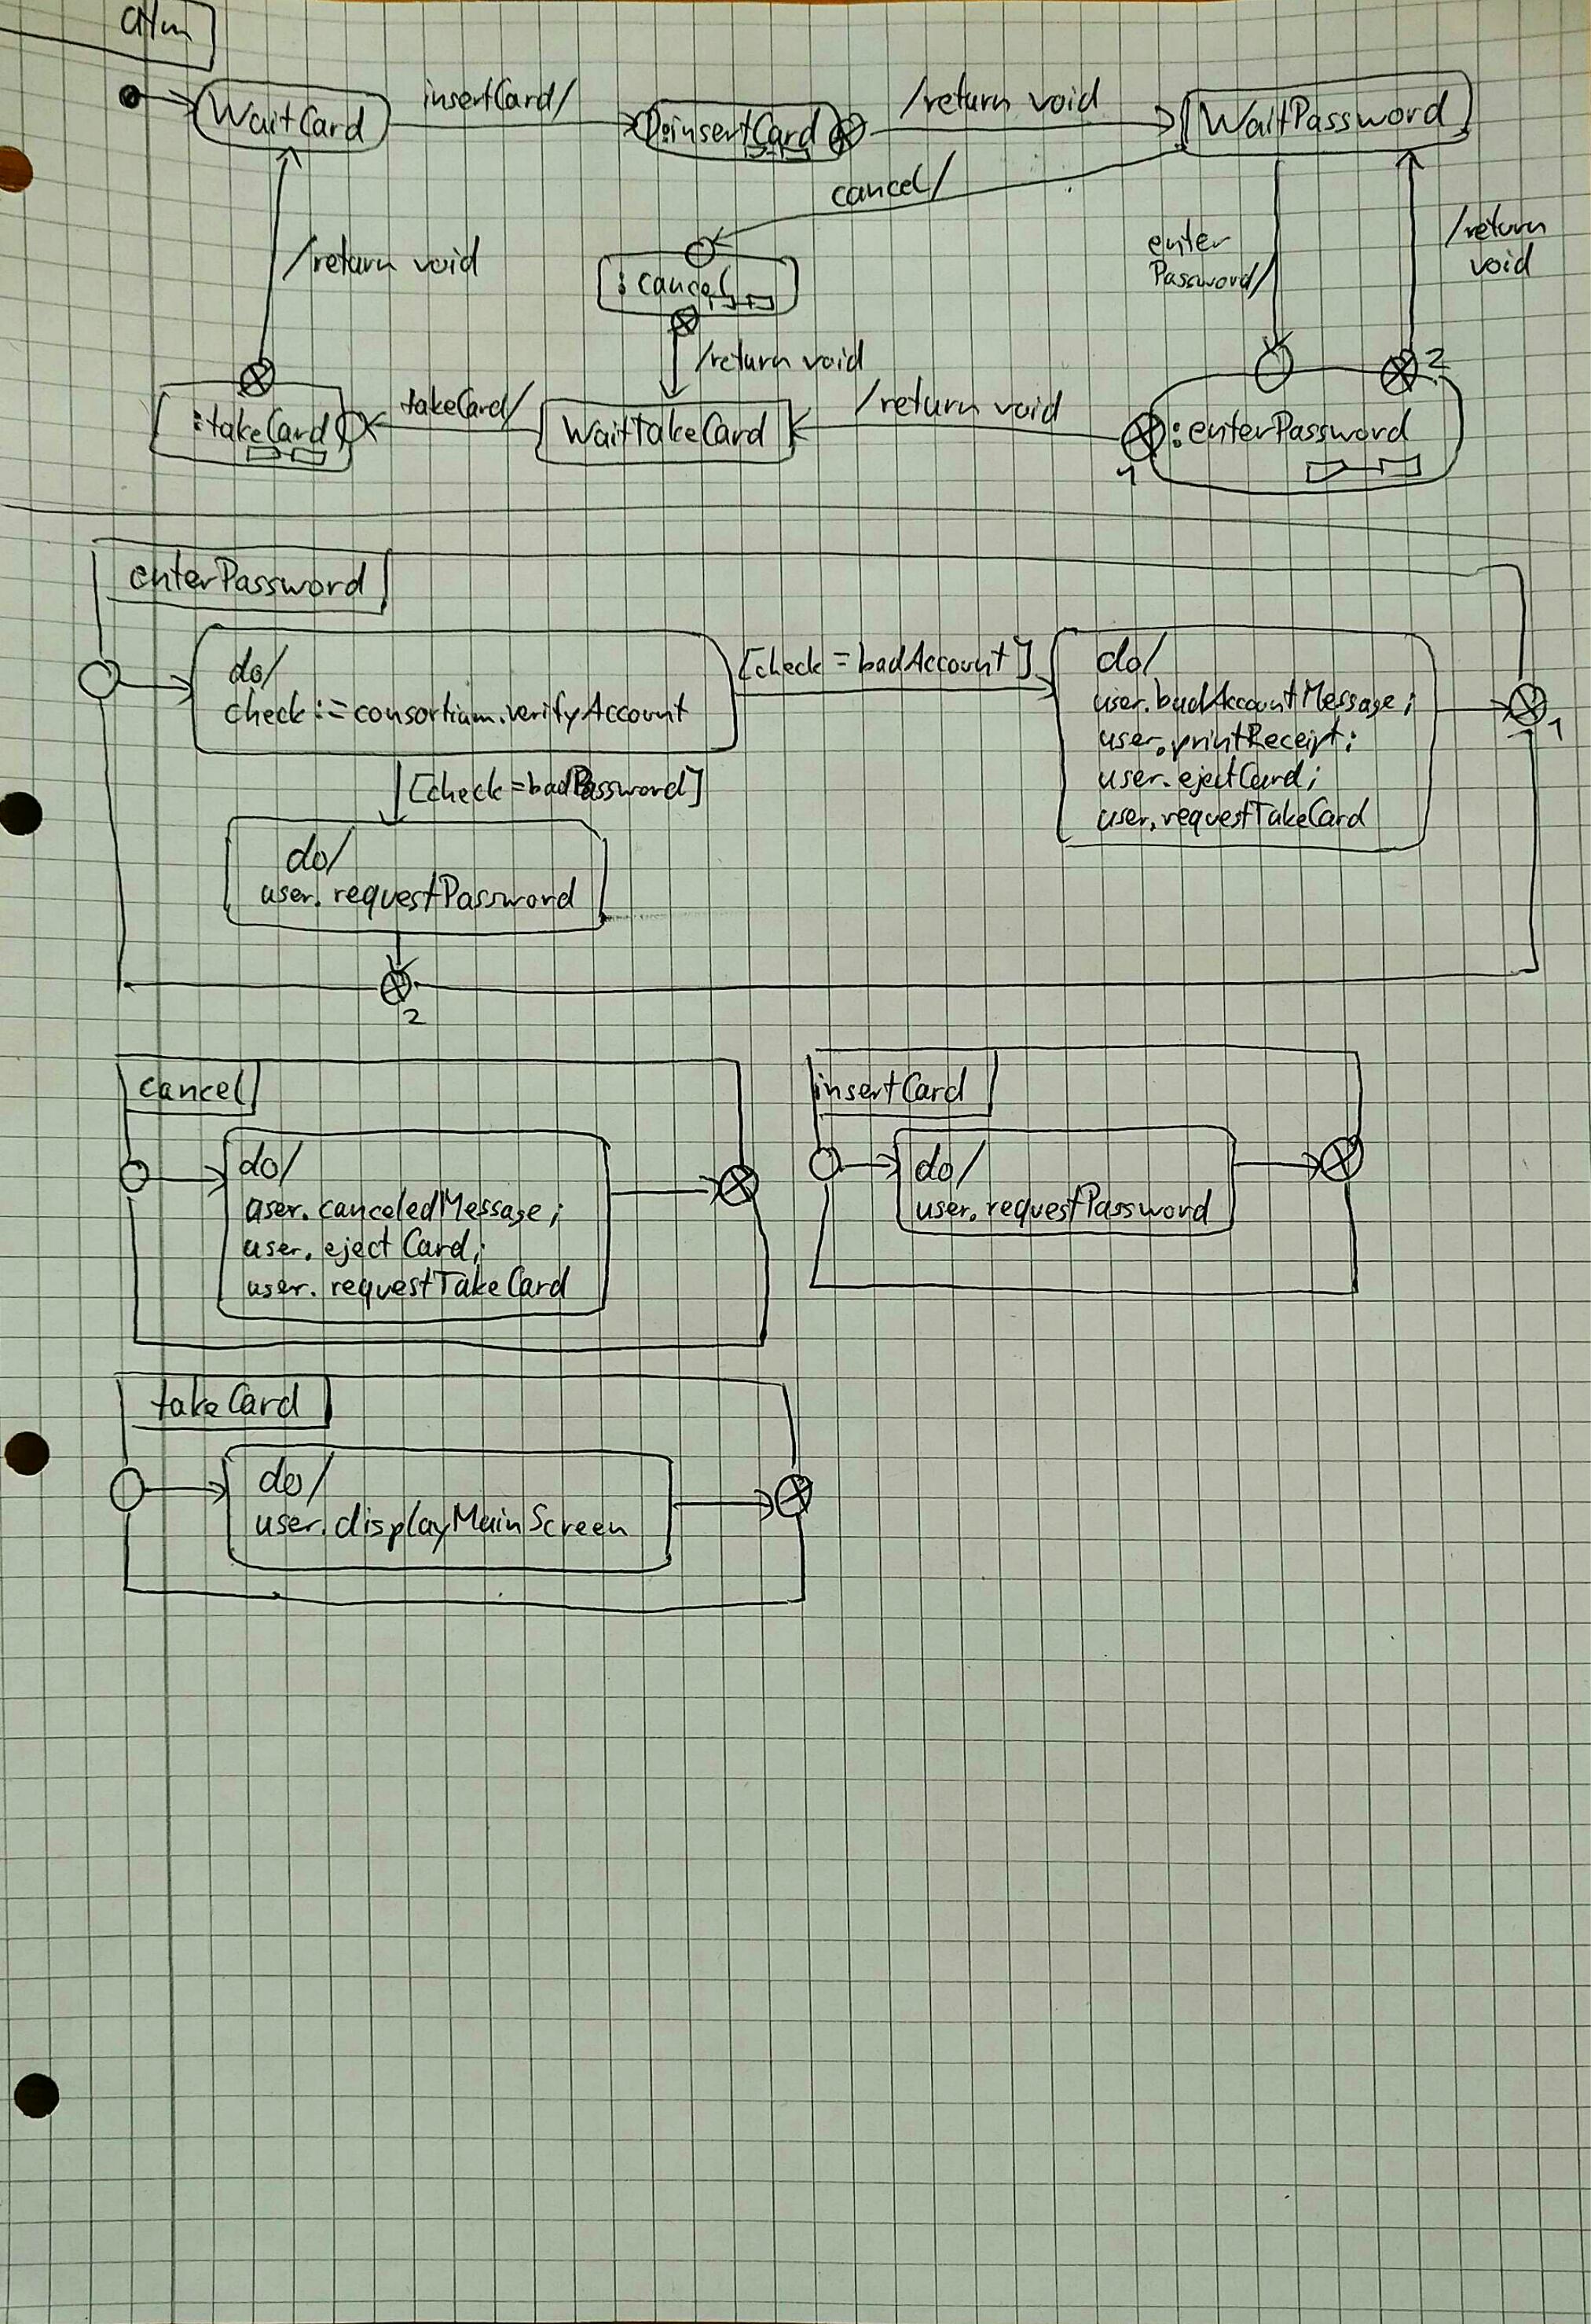 atm
WaitCard
insertCard/
:insertCard
/return void
WaitPassword
cancel/
/return void
:cancel
enter
Password/
/return
void
/return void
:takeCard
takeCard/
WaitTakeCard
/return void
:enterPassword
1
2
enterPassword
do/
check:=consortium.verifyAccount
[check=badAccount]
do/
user.badAccountMessage;
user.printReceipt;
user.ejectCard;
user.requestTakeCard
1
[check=badPassword]
do/
user.requestPassword
2
cancel
do/
user.canceledMessage;
user.ejectCard;
user.requestTakeCard
insertCard
do/
user.requestPassword
takeCard
do/
user.displayMainScreen